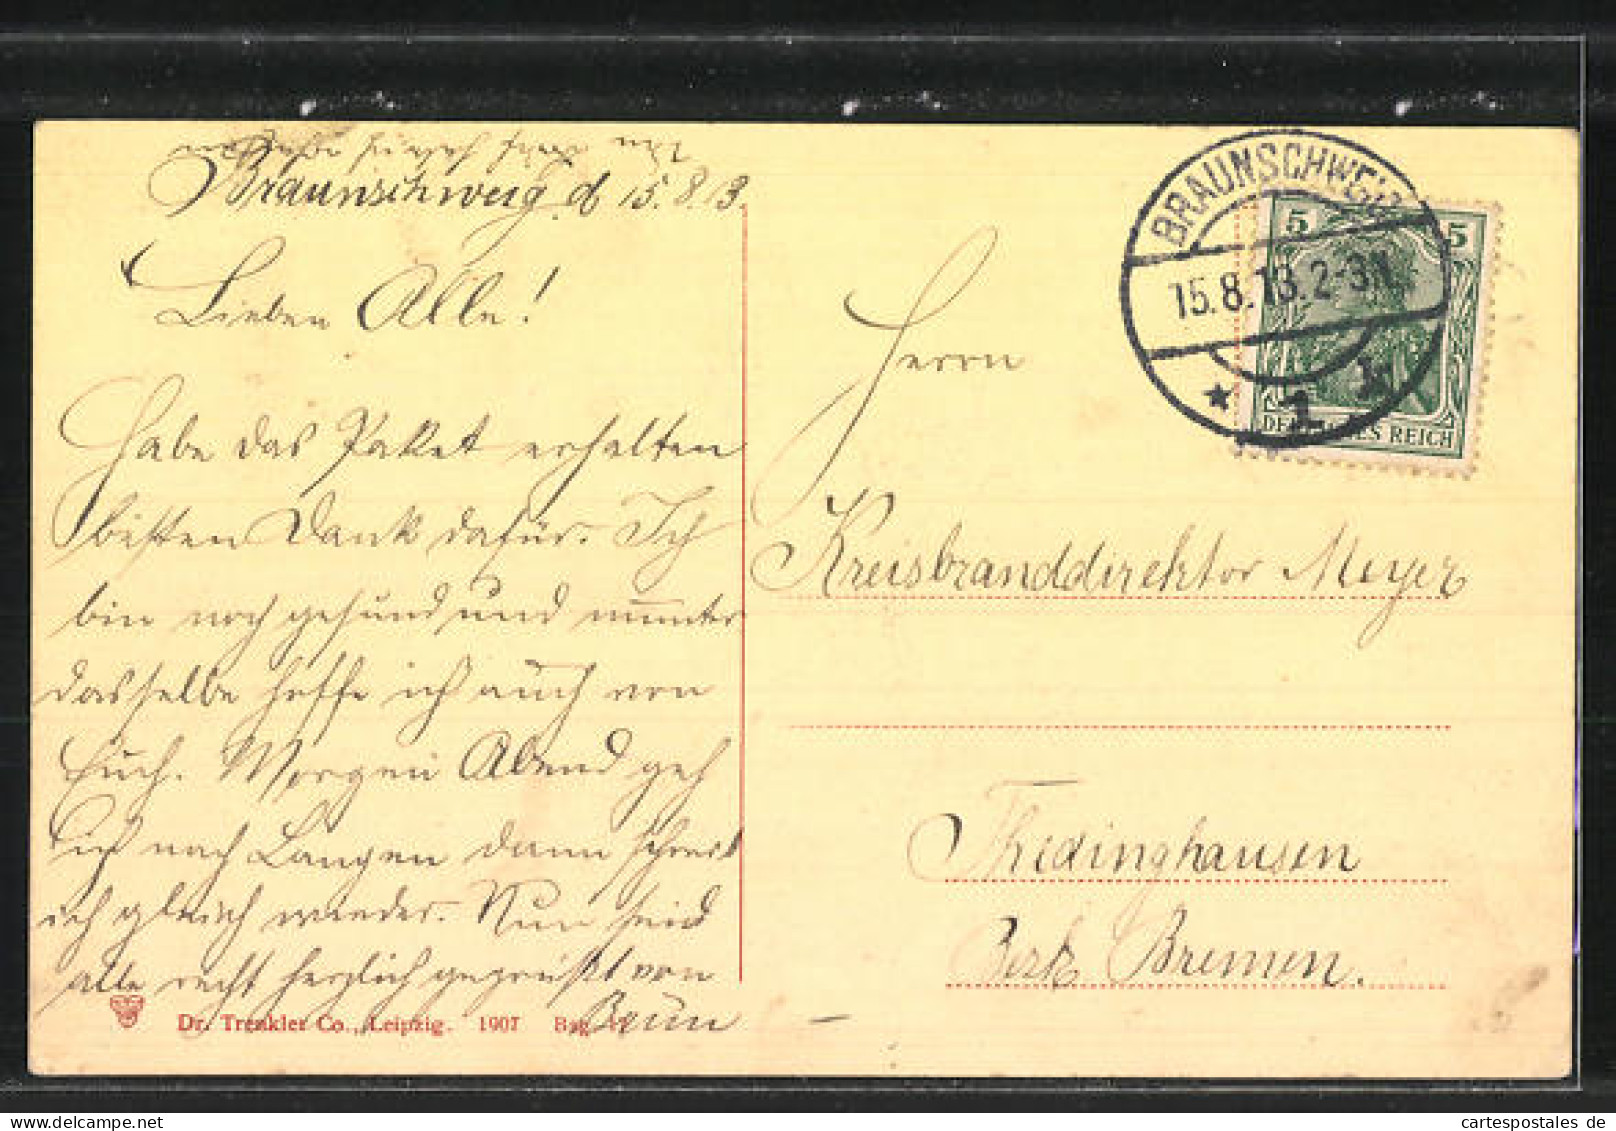 Braunschweig, d 15.8.13.
Lieben Alle!
Habe das Paket erhalten
besten Dank dafür. Ich
bin noch gesund und munter
dasselbe hoffe ich auch von
Euch. Morgen Abend geh
ich nach Langen dann schreib
ich gleich wieder. Nun seid
alle recht herzlich gegrüßt von
Dr. Trenkler Co., Leipzig. 1907
BRAUNSCHWEIG
15.8.13.2-3N.
* 1 k
5 5
DEUTSCHES REICH
Herrn
Kreisbranddirektor Meyer
Thedinghausen
Bezk Bremen.
cartespostales de